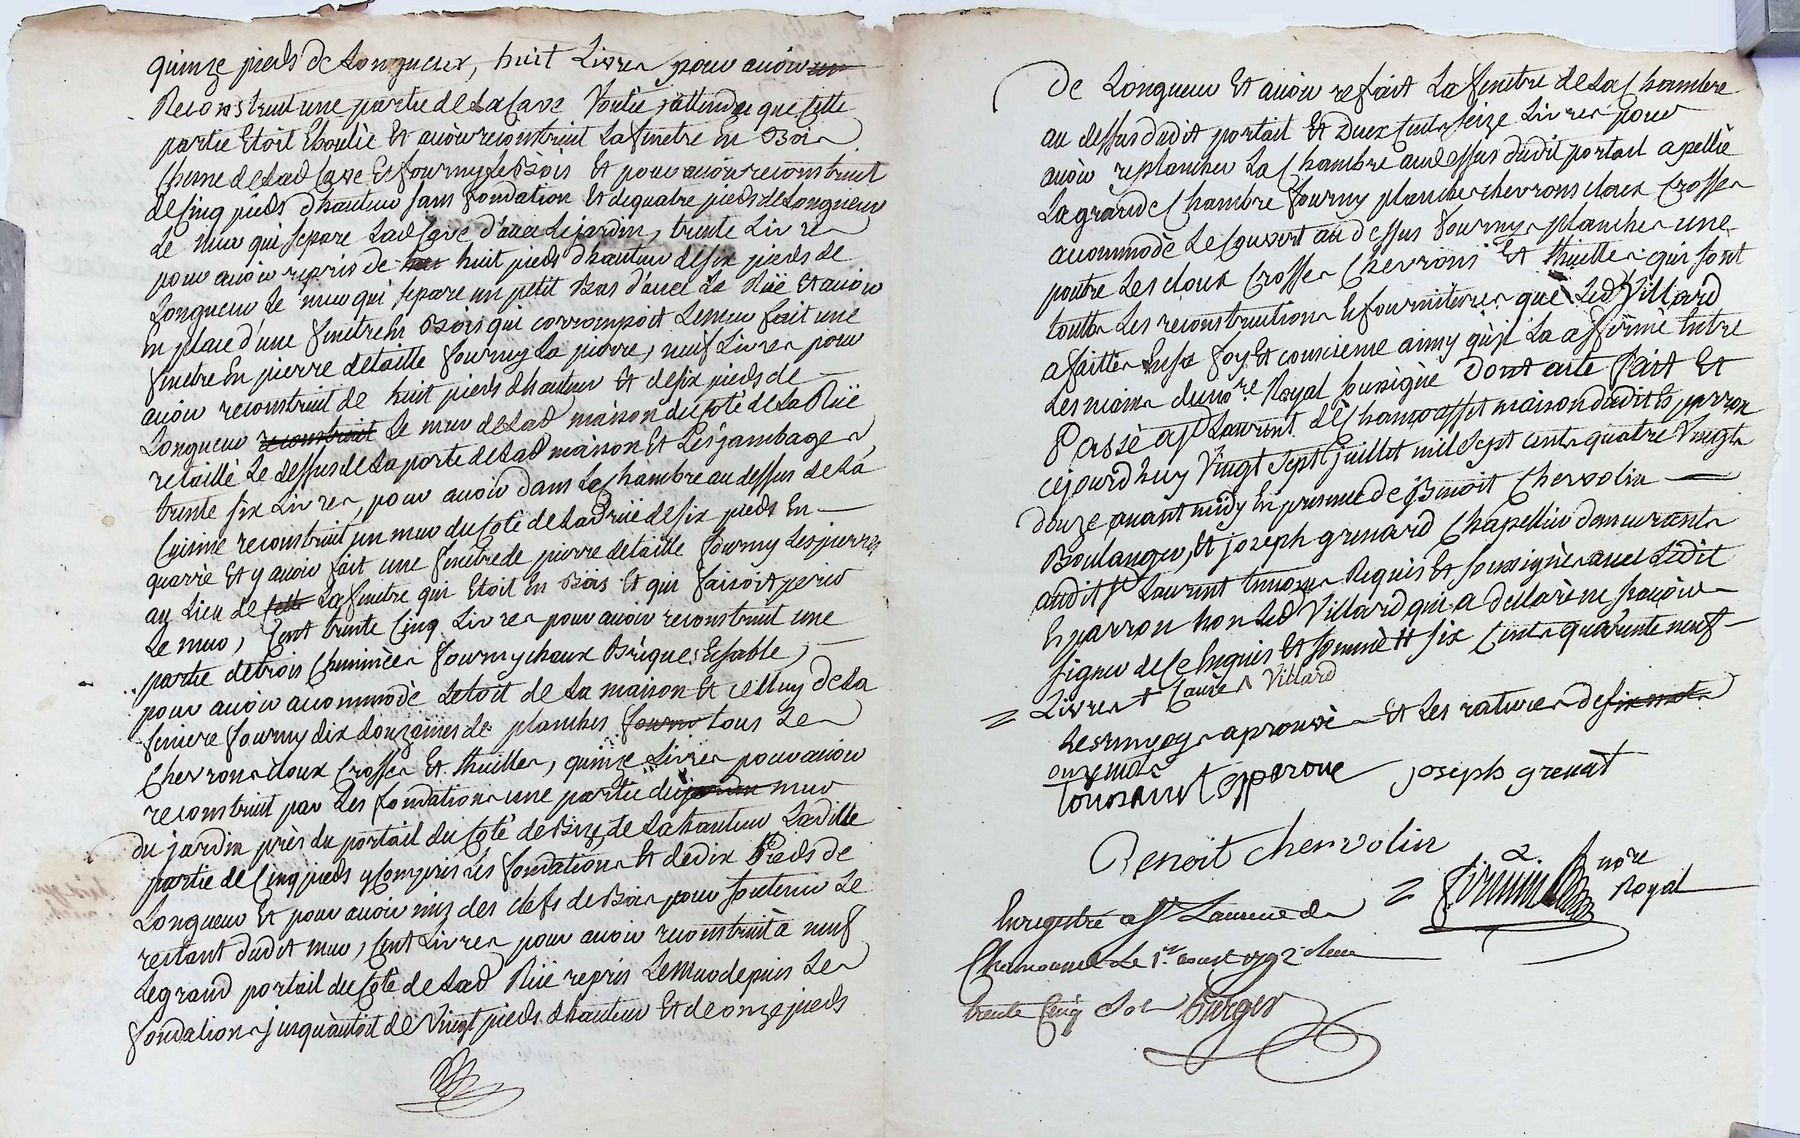 quinze pieds de Longueur, huit Livres pour avoir
Reconstruit une partie de la Cave Voutée j'attendes que cette
partie Etoit Eboulié Et avoir reconstruit La finetre en Bois
Chene de lad Cave Et fourny le Bois Et pour avoir reconstruit
de Cinq pieds d'hauteur sans fondation Et de quatre pieds de Longueur
Le mur qui separe Lad Cave d'avec Le jardin, trente Livres
pour avoir repris de huit pieds d'hauteur de six pieds de
Longueur Le mur qui separe un petit Bas d'avec La Rüe Et avoir
En place d'une finetre En Bois qui corrompoit Le mur fait une
finetre En pierre detaille fourny La pierre, neuf Livres pour
avoir reconstruit de huit pieds d'hauteur Et de six pieds de
Longueur reconstruit Le mur de Lad maison du Coté de La Rüe
retaillé Le dessus de La porte de Lad maison Et Les jambages
trente six Livres, pour avoir dans La Chambre au dessus de La
Cuisine reconstruit un mur du Coté de Lad rüe de six pieds En
quarré Et y avoir fait une finetre de pierre detaille fourny Les pierres
au Lieu de cette La finetre qui Etoit En Bois Et qui faisoit perir
Le mur, Cent trente Cinq Livres pour avoir reconstruit une
partie de trois Cheminées fourny chaux Briques Et sable,
pour avoir accommodé Le toit de La maison Et celluy de La
finiere fourny dix douzaines de planches fourny tous Les
Chevrons cloux Crosses Et thuilles, quinze Livres pour avoir
reconstruit par Les fondations une partie du jardin mur
du jardin près du portail du Coté de Bize, de La hauteur Ladite
partie de Cinq pieds y Compris Les fondations Et de dix Pieds de
Longueur Et pour avoir mis des clefs de Bois pour soutenir Le
restant dudit mur, Cent Livres pour avoir reconstruit à neuf
Le grand portail du Coté de Lad Rüe repris Le mur depuis Les
fondations jusqu'au toit de Vingt pieds d'hauteur Et de onze pieds
De Longueur Et avoir refait La finetre de La Chambre
au dessus dudit portail Et Deux Cents seize Livres pour
avoir replancher La Chambre au dessus dudit portail apellée
La grande Chambre fourny planches chevrons cloux Crosses
accommodé Le Couvert au dessus fourny planches une
poutre Les cloux Crosses Chevrons Et thuilles qui sont
touttes Les reconstructions Et fournitures que Led Villard
a faittes En sa foy Et conscience ainsy qu'il La affirmé Entre
Les mains du no.re Royal soussigné Dont acte fait Et
Passé a St Laurent de Chamousset maison dudit Esparron
cejourd'huy Vingt Sept juillet mil sept cents quatre Vingt
douze avant midy En presence de Benoit Chervolin
Boulanger, Et joseph grenard Chapellier demeurants
audit St Laurent temoins Requis Et soussignés avec Ledit
Esparron non Led Villard qui a declaré ne scavoir
signer de ce Enquis Et sommé # six Cents quarente neuf
= Livres + Laurent Villard
Les renvoys aprouvés Et Les ratures de six mots
onze mots
Esparron approuve joseph grenat
Benoit chervolin
= no.re
Royal
Enregistré a St Laurent de
Chamousset Le 1.er aoust 1792 Reçu
trente Cinq Sols